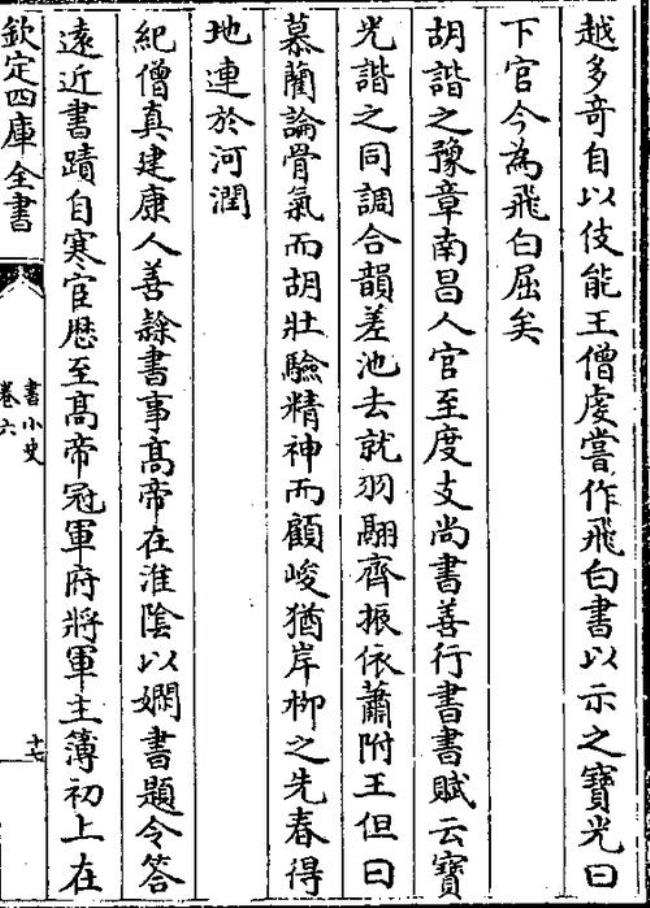 越多奇自以伎能王僧虔嘗作飛白書以示之寶光曰
下官今為飛白屈矣
胡諧之豫章南昌人官至度支尚書善行書書賦云寶
光諧之同調合韻差池去就羽翮齊振依蕭附王但曰
慕藺論骨氣而胡壯驗精神而顧峻猶岸柳之先春得
地連於河潤
紀僧真建康人善隸書事髙帝在淮陰以嫻書題令答
逺近書蹟自寒宦歴至髙帝冠軍府將軍主簿初上在
欽定四庫全書
書小史
卷六
十七